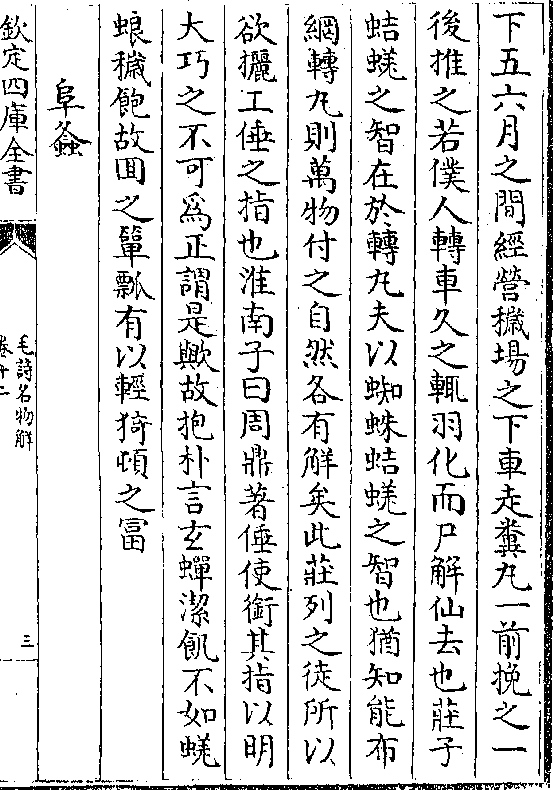 下五六月之間經營穢場之下車走糞丸一前挽之一
後推之若僕人轉車久之輒羽化而尸解仙去也莊子
蛣蜣之智在於轉丸夫以蜘蛛蛣蜣之智也猶知能布
網轉丸則萬物付之自然各有解矣此莊列之徒所以
欲攦工倕之指也淮南子曰周鼎著倕使銜其指以明
大巧之不可為正謂是歟故抱朴言玄蟬潔飢不如蜣
蜋穢飽故囬之簞瓢有以輕猗頓之冨
阜螽
欽定四庫全書
毛詩名物解
卷十二
三